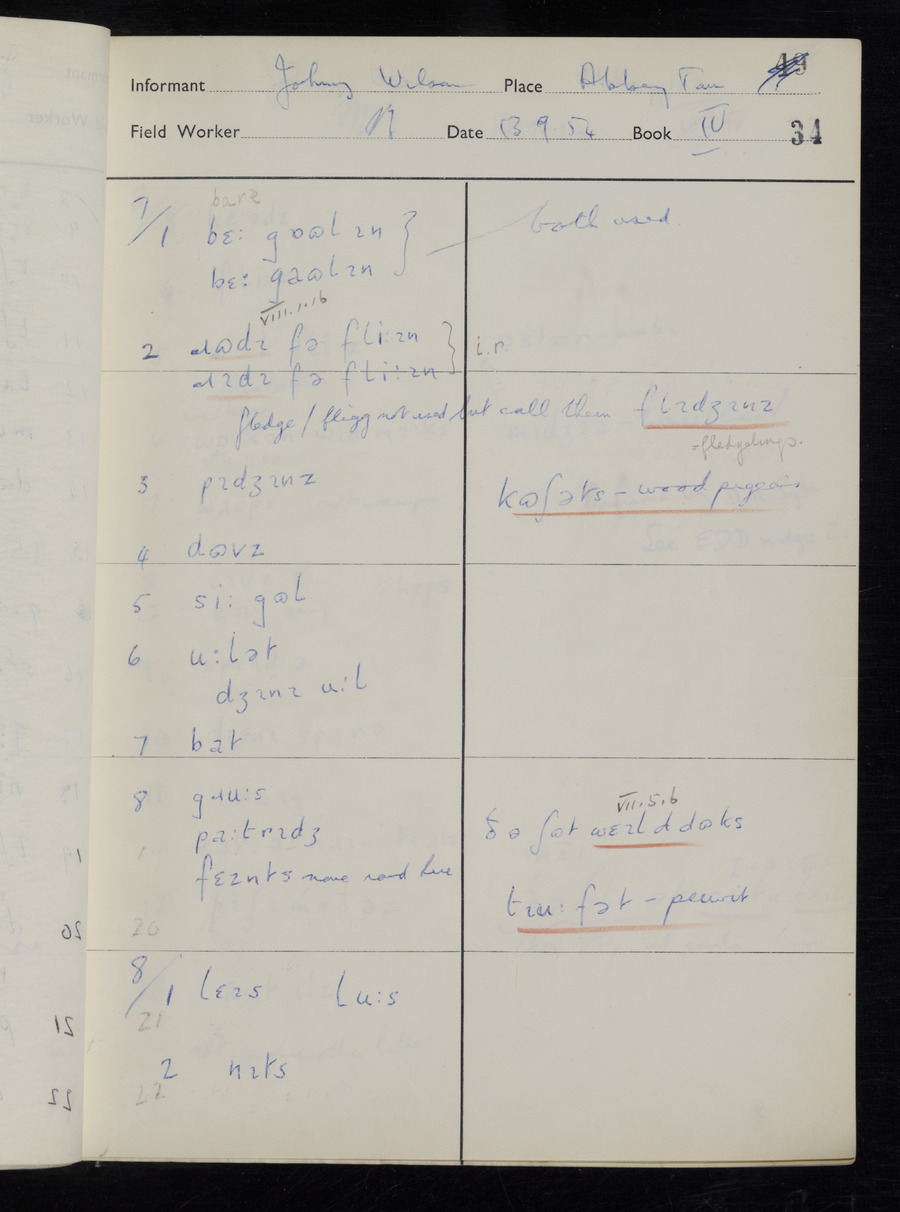 Informant Johnny Wilson Place Abbey Town 49
Field Worker N Date 13 9. 54 Book IV 34
7/1 bɛ: gɒɷlɪn } both used.
bɛ: gəɷlɪn
VIII.1.16
2 ɹɷdɪ fə fli:ɪn } i.r.
ɹɪdɪ fə fli:ɪn
fledge / fligg not used but call them flɪdʒɪnz
=fledgelings.
3 pɪdʒɪnz kɷʃəts – wood pigeons
4 dɷvz
5 si: gɷl
6 u:lət
dʒɪnɪ u:l
7 bat
VII.5.6
8 gɹu:s ðə ʃət wɛɪld dɷks
pa:tɹɪdʒ
fɛznts none round here
tɪu: fət – peewit
20
8/1 lɛɪs lu:s
21
2 nɪts
22
20
21
22